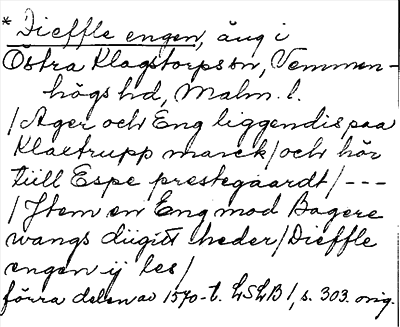 * Dieffle engen, äng i
Östra Klagstorps sn, Vemmen-
högs hd, Malm. l.
/Ager och Eng liggendis paa
Klactrupp marck/och hör
tüll Espe prestegaardt/---
/Item en Eng mod Bagere
wangs düigitt heder/Dieffle
engen ij les/
förra delen av 1570-t. LSLB I, s. 303. orig.